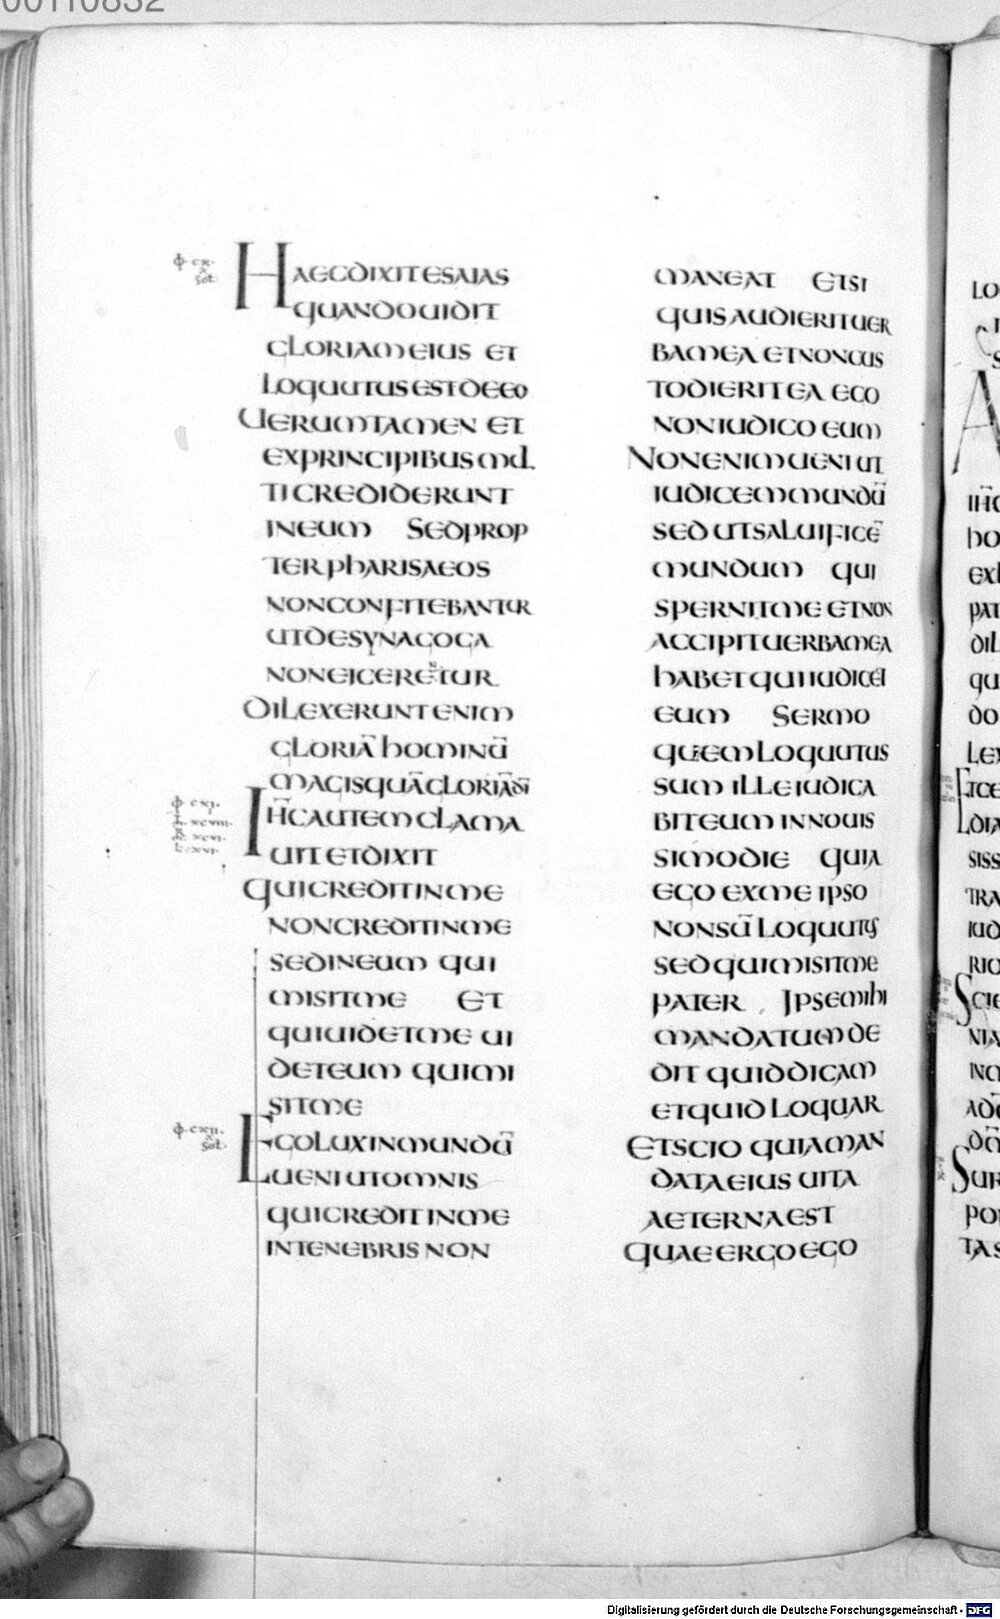 00110832
φ cx.
x
sol.
HAECDIXITESAIAS
QUANDOUIDIT
GLORIAMEIUS ET
LOQUUTUSESTDEEO
UERUMTAMEN ET
EXPRINCIPIBUSMUL
TICREDIDERUNT
INEUM SEDPROP
TERPHARISAEOS
NONCONFITEBANTUR
UTDESYNAGOGA
NONEICERENTUR
DILEXERUNTENIM
GLORIĀ HOMINŪ
MAGISQUĀGLORIĀD̄I
φ cxi.
xcviii.
xcvi.
IH̄CAUTEMCLAMA
UITETDIXIT
QUICREDITINME
NONCREDITINME
SEDINEUM QUI
MISITME ET
QUIUIDETME UI
DETEUM QUIMI
SITME
φ cxii.
x
sol.
EGOLUXINMUNDŪ
UENIUTOMNIS
QUICREDITINME
INTENEBRIS NON
MANEAT ETSI
QUISAUDIERITUER
BAMEA ETNONCUS
TODIERITEA EGO
NONIUDICO EUM
NONENIMUENIUT
IUDICEMMUNDŪ
SEDUTSALUIFICĒ
MUNDUM QUI
SPERNITME ETNON
ACCIPITUERBAMEA
HABETQUIIUDICET
EUM SERMO
QUEMLOQUUTUS
SUM ILLEIUDICA
BITEUM INNOUIS
SIMODIE QUIA
EGO EXME IPSO
NONSŪLOQUUTUS
SEDQUIMISITME
PATER IPSEMIHI
MANDATUMDE
DIT QUIDDICAM
ETQUIDLOQUAR
ETSCIO QUIAMAN
DATAEIUS UITA
AETERNAEST
QUAEERGOEGO
Digitalisierung gefördert durch die Deutsche Forschungsgemeinschaft - DFG